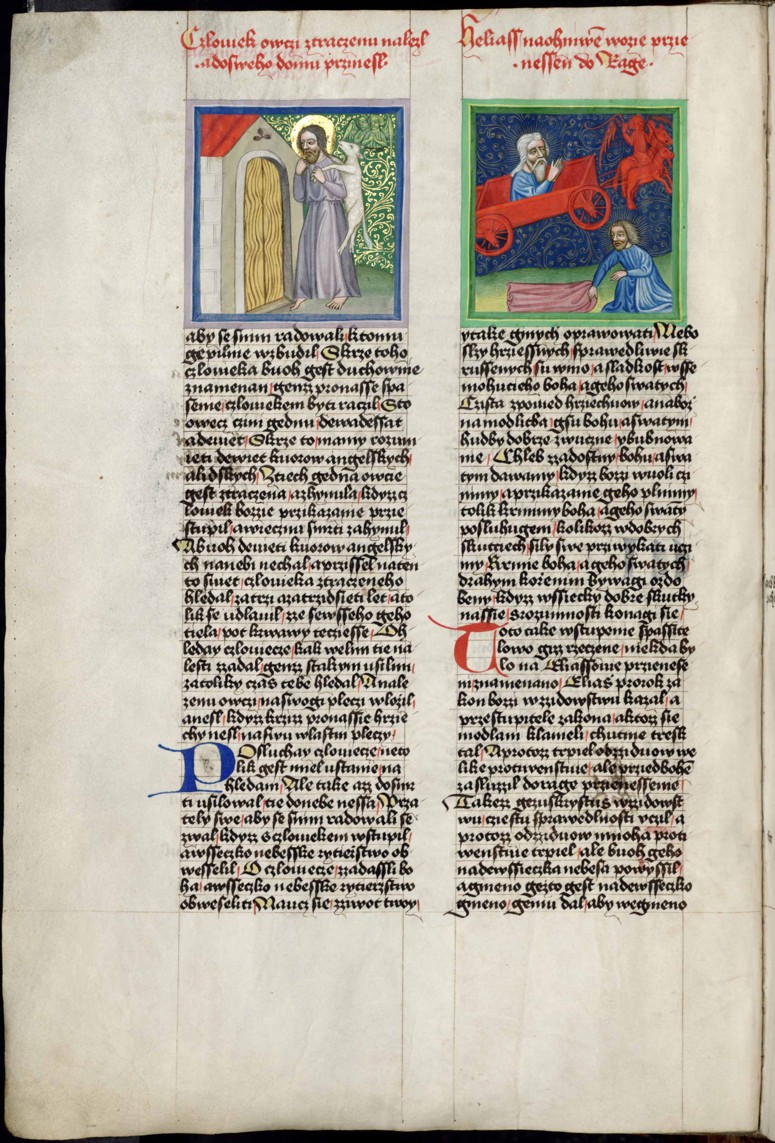 Czlowiek owczi ztraczenu nalezl
a do sweho domu przinesl
aby se snim radowali k tomu
ge pilnie wzbudil Skrze toho
czlowieka buoh gest duchownie
znamenan genz pro nasse spa
senie czlowiekem byti raczil Sto
owecz czim gednu dewadessat
a dewiet Skrze to mamy rozum
ieti dewiet kuorow angelskych
a lidskych Z tiech gedna owcie
gest ztraczena a zhynula kdyz cz
lowiek bozie przikazanie prze
stupil a wiecznu smrti zahynul
A buoh dewieti kuorow angelsky
ch na nebi nechal a przissel na ten
to swiet czlowieka ztraczeneho
hledal za trzi a za trzidsieti let a to
lik se vdlawil zze se wsseho geho
tiela pot krwawy tecziesse Oh
leday czlowiecze kak welmi tie na
lesti zzadal genz s takym vsilim
za toliky czas tebe hledal A nale
zenu owczi na swogi pleczi wlozil
a nesl kdyz krziz pro nassie hrzie
chy nesl na swu wlastni pleczy
Posluchay czlowiecze neto
lik gest miel vstanie na
hledani Ale take az do smr
ti vsilowal tie do nebe nessa Prza
tely swe aby se snim radowali se
zwal kdyz s czlowiekem wstupil
a wsseczko nebesske rytierzstwo ob
weselil O czlowiecze zzadassli bo
ha a wsseczko nebesske rytierzstwo
obweseliti Naucz sie zziwot twoy
Heliass na ohniwem wozie przie
nessen do Rage
y take gmych oprawowati Nebo
slzy hrziessnych sprawedliwie sk
russenych su wino a sladkost wsse
mohucieho boha a geho swatych
Czista zpowied hrziechuow a naboz
na modlitba gsu bohu a swatym
hudby dobrze zwuczne y bubnowa
nie Chleb zzadostny bohu a swa
tym dawamy kdyz bozi wuoli czi
nimy a przikazanie geho plnimy
tolik krmimy boha a geho swaty
posluhugem kolikoz w dobrych
skutciech sily swe przywykati uczi
my Krmie boha a geho swatych
drahym korzenim bywagi ozdo
beny kdyz wssiecky dobre skutky
nassie s rozumnosti konagi sie
Toto take wstupenie spassite
lowo giz rzeczene niekda by
lo na Eliassowie przienese
ni znamenano Elias prorok za
kon bozi w zzidowstwu kazal a
przestupitele zakona a ktoz sie
modlam klanieli chutnie tresk
tal A protoz trpiel od zziduow we
like protiwenstwie ale przed bohem
zasluzil do rage przenessenie
Takez gezuskrystus w zzidowst
wu cziestu sprawedlnosti vczil a
protoz od zziduow mnoha proti
wenstwie trpiel ale buoh geho
nadewssieczka nebesa powyssil
a gmeno gezto gest nadewsseczko
gmeno gemu dal aby we gmeno